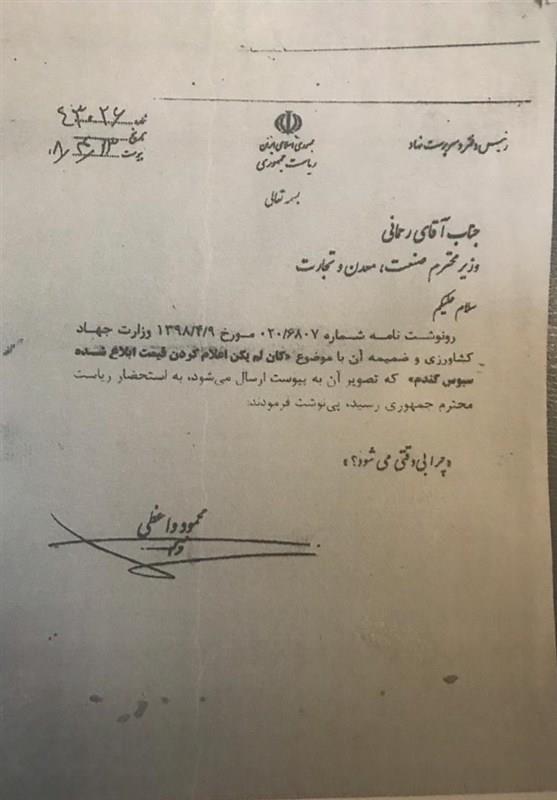 رئیس دفتر و سرپرست نهاد
جمهوری اسلامی ایران
ریاست جمهوری
بسمه تعالی
شماره
تاریخ
پیوست
جناب آقای رحمانی
وزیر محترم صنعت، معدن و تجارت
سلام علیکم
رونوشت نامه شماره ۰۲۰/۶۸۰۷ مورخ ۱۳۹۸/۴/۹ وزارت جهاد
کشاورزی و ضمیمه آن با موضوع «کان لم یکن اعلام کردن قیمت ابلاغ شده
سبوس گندم» که تصویر آن به پیوست ارسال می‌شود، به استحضار ریاست
محترم جمهوری رسید، پی‌نوشت فرمودند:
«چرا بی‌دقتی می شود؟»
محمود واعظی